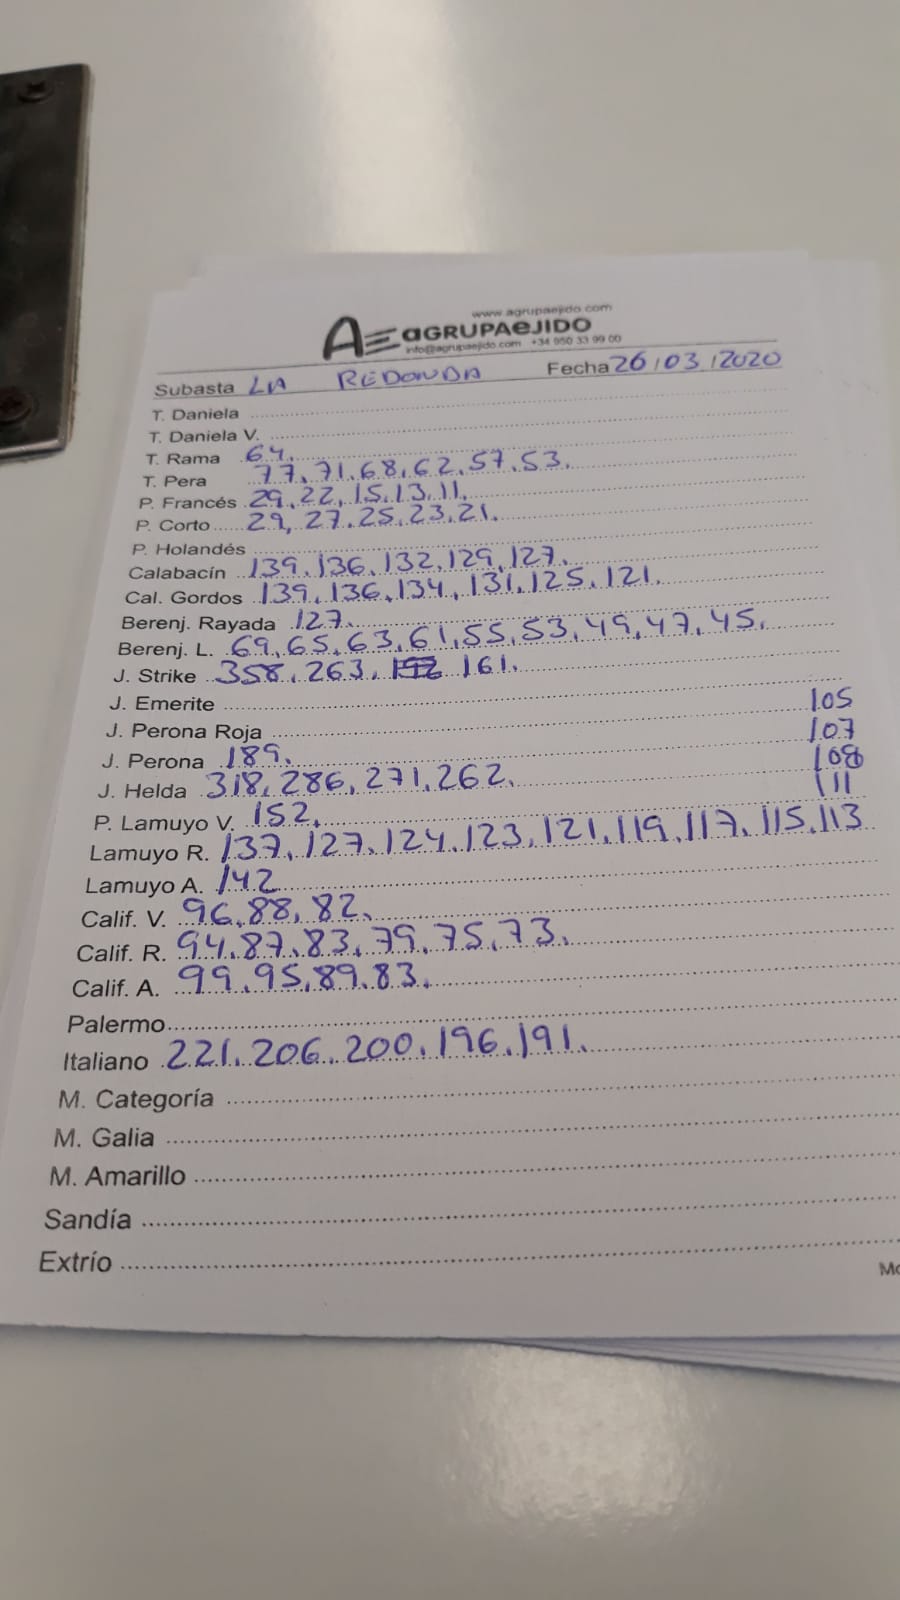 www.agrupaejido.com
AE aGRUPAeJIDO
info@agrupaejido.com +34 950 33 99 00
Subasta LA REDONDA Fecha 26/03/2020
T. Daniela
T. Daniela V.
T. Rama 64.
T. Pera 77, 71, 68, 62, 57, 53.
P. Francés 29, 22, 15, 13, 11.
P. Corto 29, 27, 25, 23, 21.
P. Holandés
Calabacín 139, 136, 132, 129, 127.
Cal. Gordos 139, 136, 134, 131, 125, 121.
Berenj. Rayada 127.
Berenj. L. 69, 65, 63, 61, 55, 53, 49, 47, 45.
J. Strike 358, 263, 161.
J. Emerite
105
J. Perona Roja
107
J. Perona 189.
108
J. Helda 318, 286, 271, 262.
111
P. Lamuyo V. 152.
Lamuyo R. 137, 127, 124, 123, 121, 119, 117, 115, 113
Lamuyo A. 142
Calif. V. 96, 88, 82.
Calif. R. 94, 87, 83, 79, 75, 73.
Calif. A. 99, 95, 89, 83.
Palermo
Italiano 221, 206, 200, 196, 191.
M. Categoría
M. Galia
M. Amarillo
Sandía
Extrío